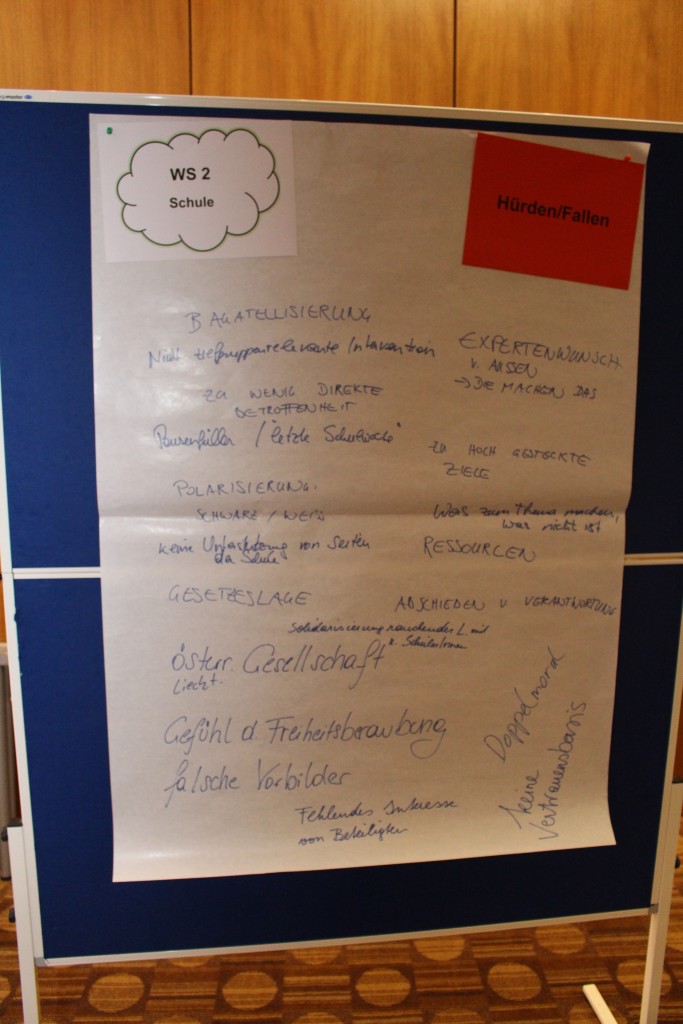 WS 2
Schule
Hürden/Fallen
BAGATELLISIERUNG
Nicht zielgruppenrelevante Intervention
EXPERTENWUNSCH
v. AUSSEN
→ DIE MACHEN DAS
ZU WENIG DIREKTE
BETROFFENHEIT
Pausenfüller / "letzte Schulwoche"
ZU HOCH GESTECKTE
ZIELE
POLARISIERUNG
SCHWARZ / WEISS
Was zum Thema machen,
was nicht ist
keine Unterstützung von Seiten
der Schule
RESSOURCEN
GESETZESLAGE
ABSCHIEBEN V VERANTWORTUNG
Solidarisierung rauchender L. mit
r. SchülerInnen
österr. Gesellschaft
Gefühl d. Freiheitsberaubung
falsche Vorbilder
Doppelmoral
keine
Vertrauensbasis
Fehlendes Interesse
von Beteiligten